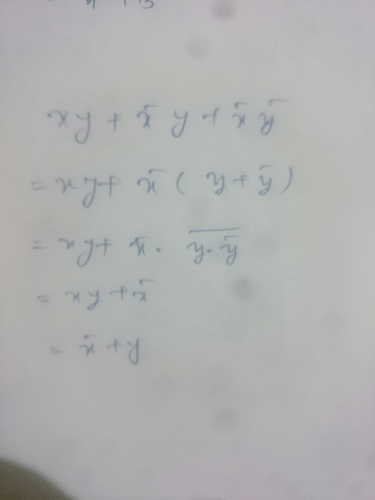 xy + x̄ y + x̄ ȳ
= xy + x̄ ( y + ȳ )
= xy + x̄ . \overline{y . ȳ}
= xy + x̄
= x̄ + y